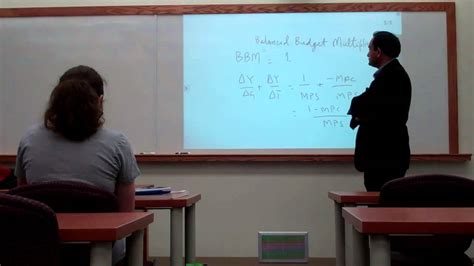 Balanced Budget Multiplier
BBM = 1.
ΔY/ΔG + ΔY/ΔT = 1/MPS + -MPC/MPS
= 1-MPC/MPS